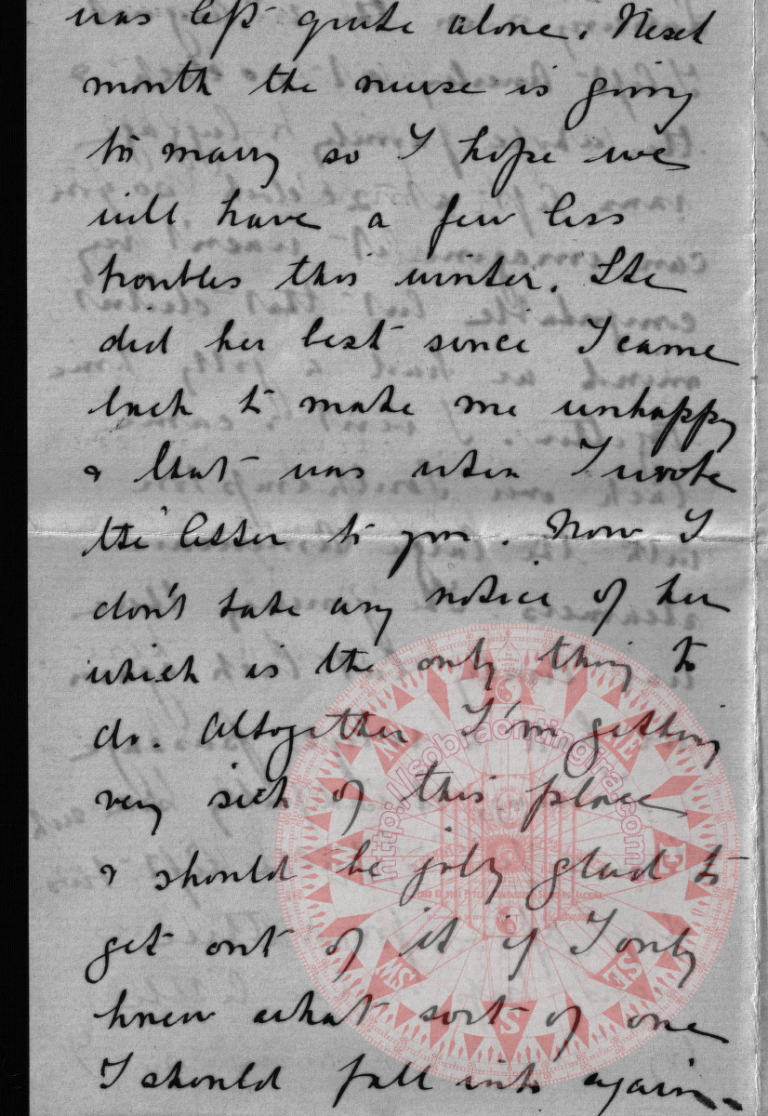 was left quite alone. Next
month the nurse is going
to marry so I hope we
will have a few less
troubles this winter. She
did her best since I came
back to make me unhappy
& that was when I wrote
the letter to you. Now I
don't take any notice of her
which is the only thing to
do. Altogether I'm getting
very sick of this place
& should be joly glad to
get out of it if I only
knew what sort of one
I should fall into again-
NE
E
SE
S
SW